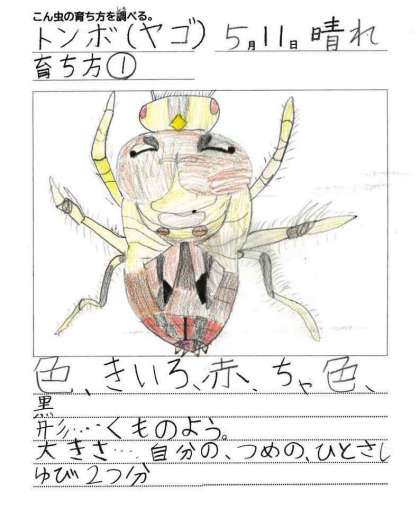 こん虫の育ち方を調べる。
トンボ(ヤゴ) 5月11日 晴れ
育ち方①
色、きいろ、赤、ちゃ色、
黒
形‥‥くものよう。
大きさ‥‥自分の、つめの、ひとさし
ゆび2つ分